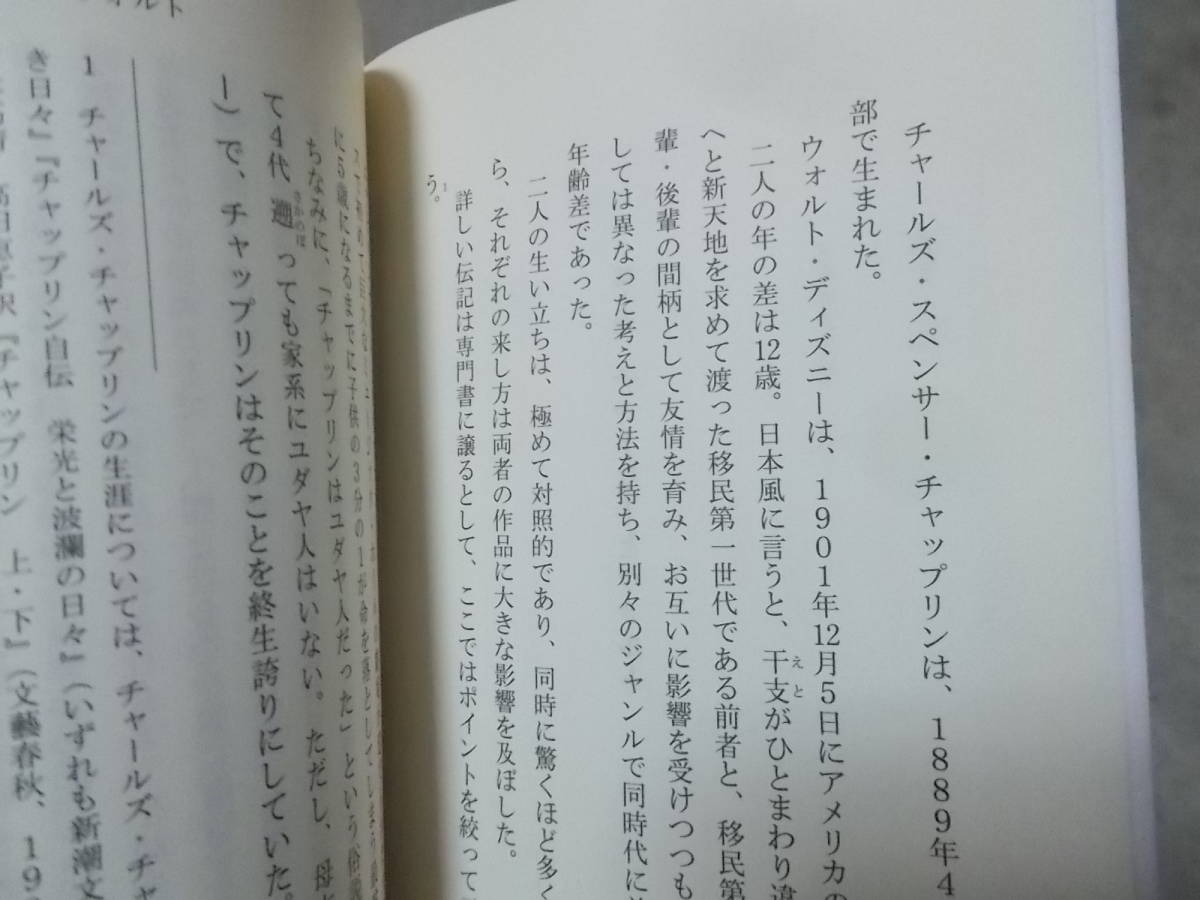 チャールズ・スペンサー・チャップリンは、1889年4
部で生まれた。
ウォルト・ディズニーは、1901年12月5日にアメリカの
二人の年の差は12歳。日本風に言うと、干支がひとまわり違
えと
へと新天地を求めて渡った移民第一世代である前者と、移民第
輩・後輩の間柄として友情を育み、お互いに影響を受けつつも
しては異なった考えと方法を持ち、別々のジャンルで同時代に
年齢差であった。
二人の生い立ちは、極めて対照的であり、同時に驚くほど多く
ら、それぞれの来し方は両者の作品に大きな影響を及ぼした。
詳しい伝記は専門書に譲るとして、ここではポイントを絞って
う。1
に5歳になるまでに子供の3分の1が命を落としてしまう
ちなみに、「チャップリンはユダヤ人だった」という俗説
て4代遡っても家系にユダヤ人はいない。ただし、母
さかのぼ
ー）で、チャップリンはそのことを終生誇りにしていた。
1 チャールズ・チャップリンの生涯については、チャールズ・チャ
き日々』『チャップリン自伝 栄光と波瀾の日々』（いずれも新潮文
高田恵子訳『チャップリン 上・下』（文藝春秋、19
ォルト